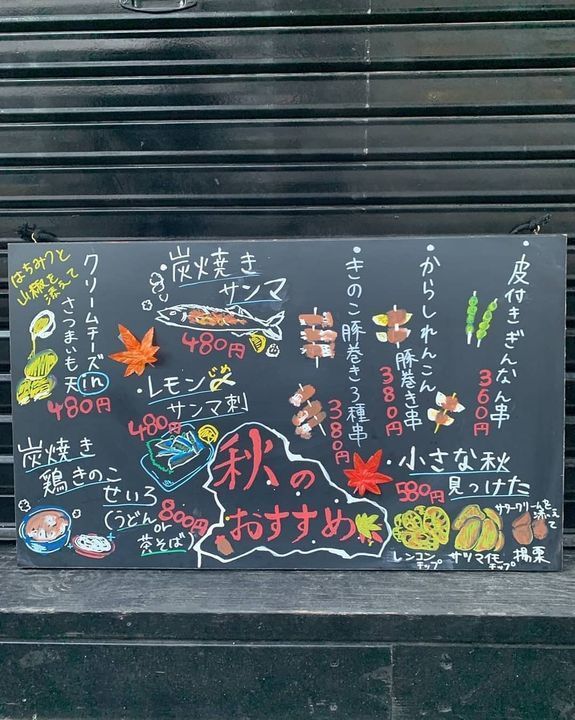 ・皮付きぎんなん串
360円
・からしれんこん
豚巻き串
380円
・きのこ豚巻き3種串
380円
・炭火焼き
サンマ
480円
・レモンじめ
サンマ刺
480円
クリームチーズin
さつまいも天
480円
はちみつと
山椒を
添えて
炭焼き
鶏きのこ
せいろ
800円
(うどん
or
茶そば)
秋の
おすすめ
・小さな秋
見っけた
580円
レンコン
チップ
サツマイモ
チップ
揚栗
サワークリームを
添えて